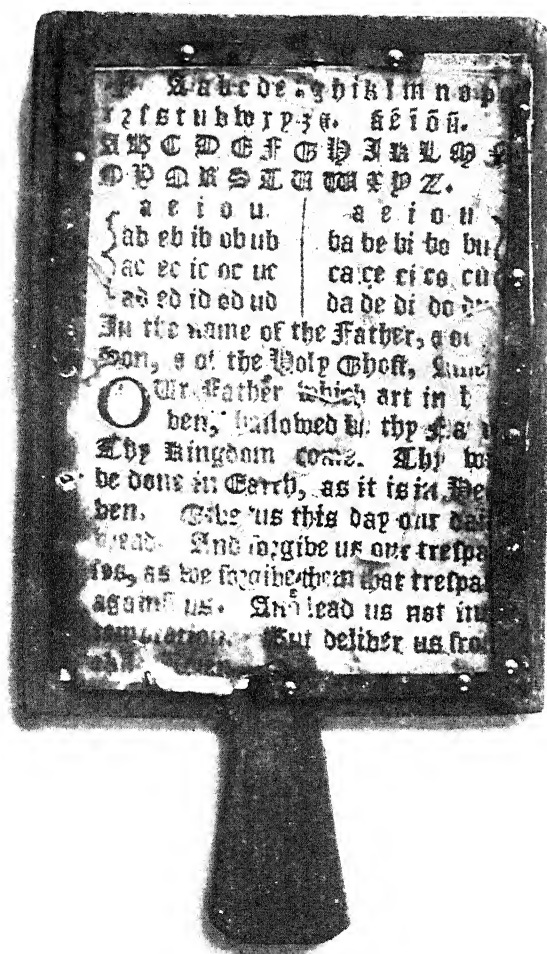 Aabcde ghiklmnop
rꝛſstuvwxyz&. ãẽĩõũ.
ABCDEFGHIKLM
OPQRSTUWXYZ.
a e i o u. a e i o u
ab eb ib ob ub ba be bi bo bu
ac ec ic oc uc ca ce ci co cu
ad ed id od ud da de di do du
In the name of the Father, & of
Son, & of the Holy Ghoſt,
OUr Father which art in
ven, hallowed be thy
Thy Kingdom come. Thy
be done in Earth, as it is in Hea
ven. Give us this day our dai
bread. And forgive us our treſpa
ſes, as we forgive them that treſpaſ
againſt us. And lead us not in
temptation. But deliver us fro